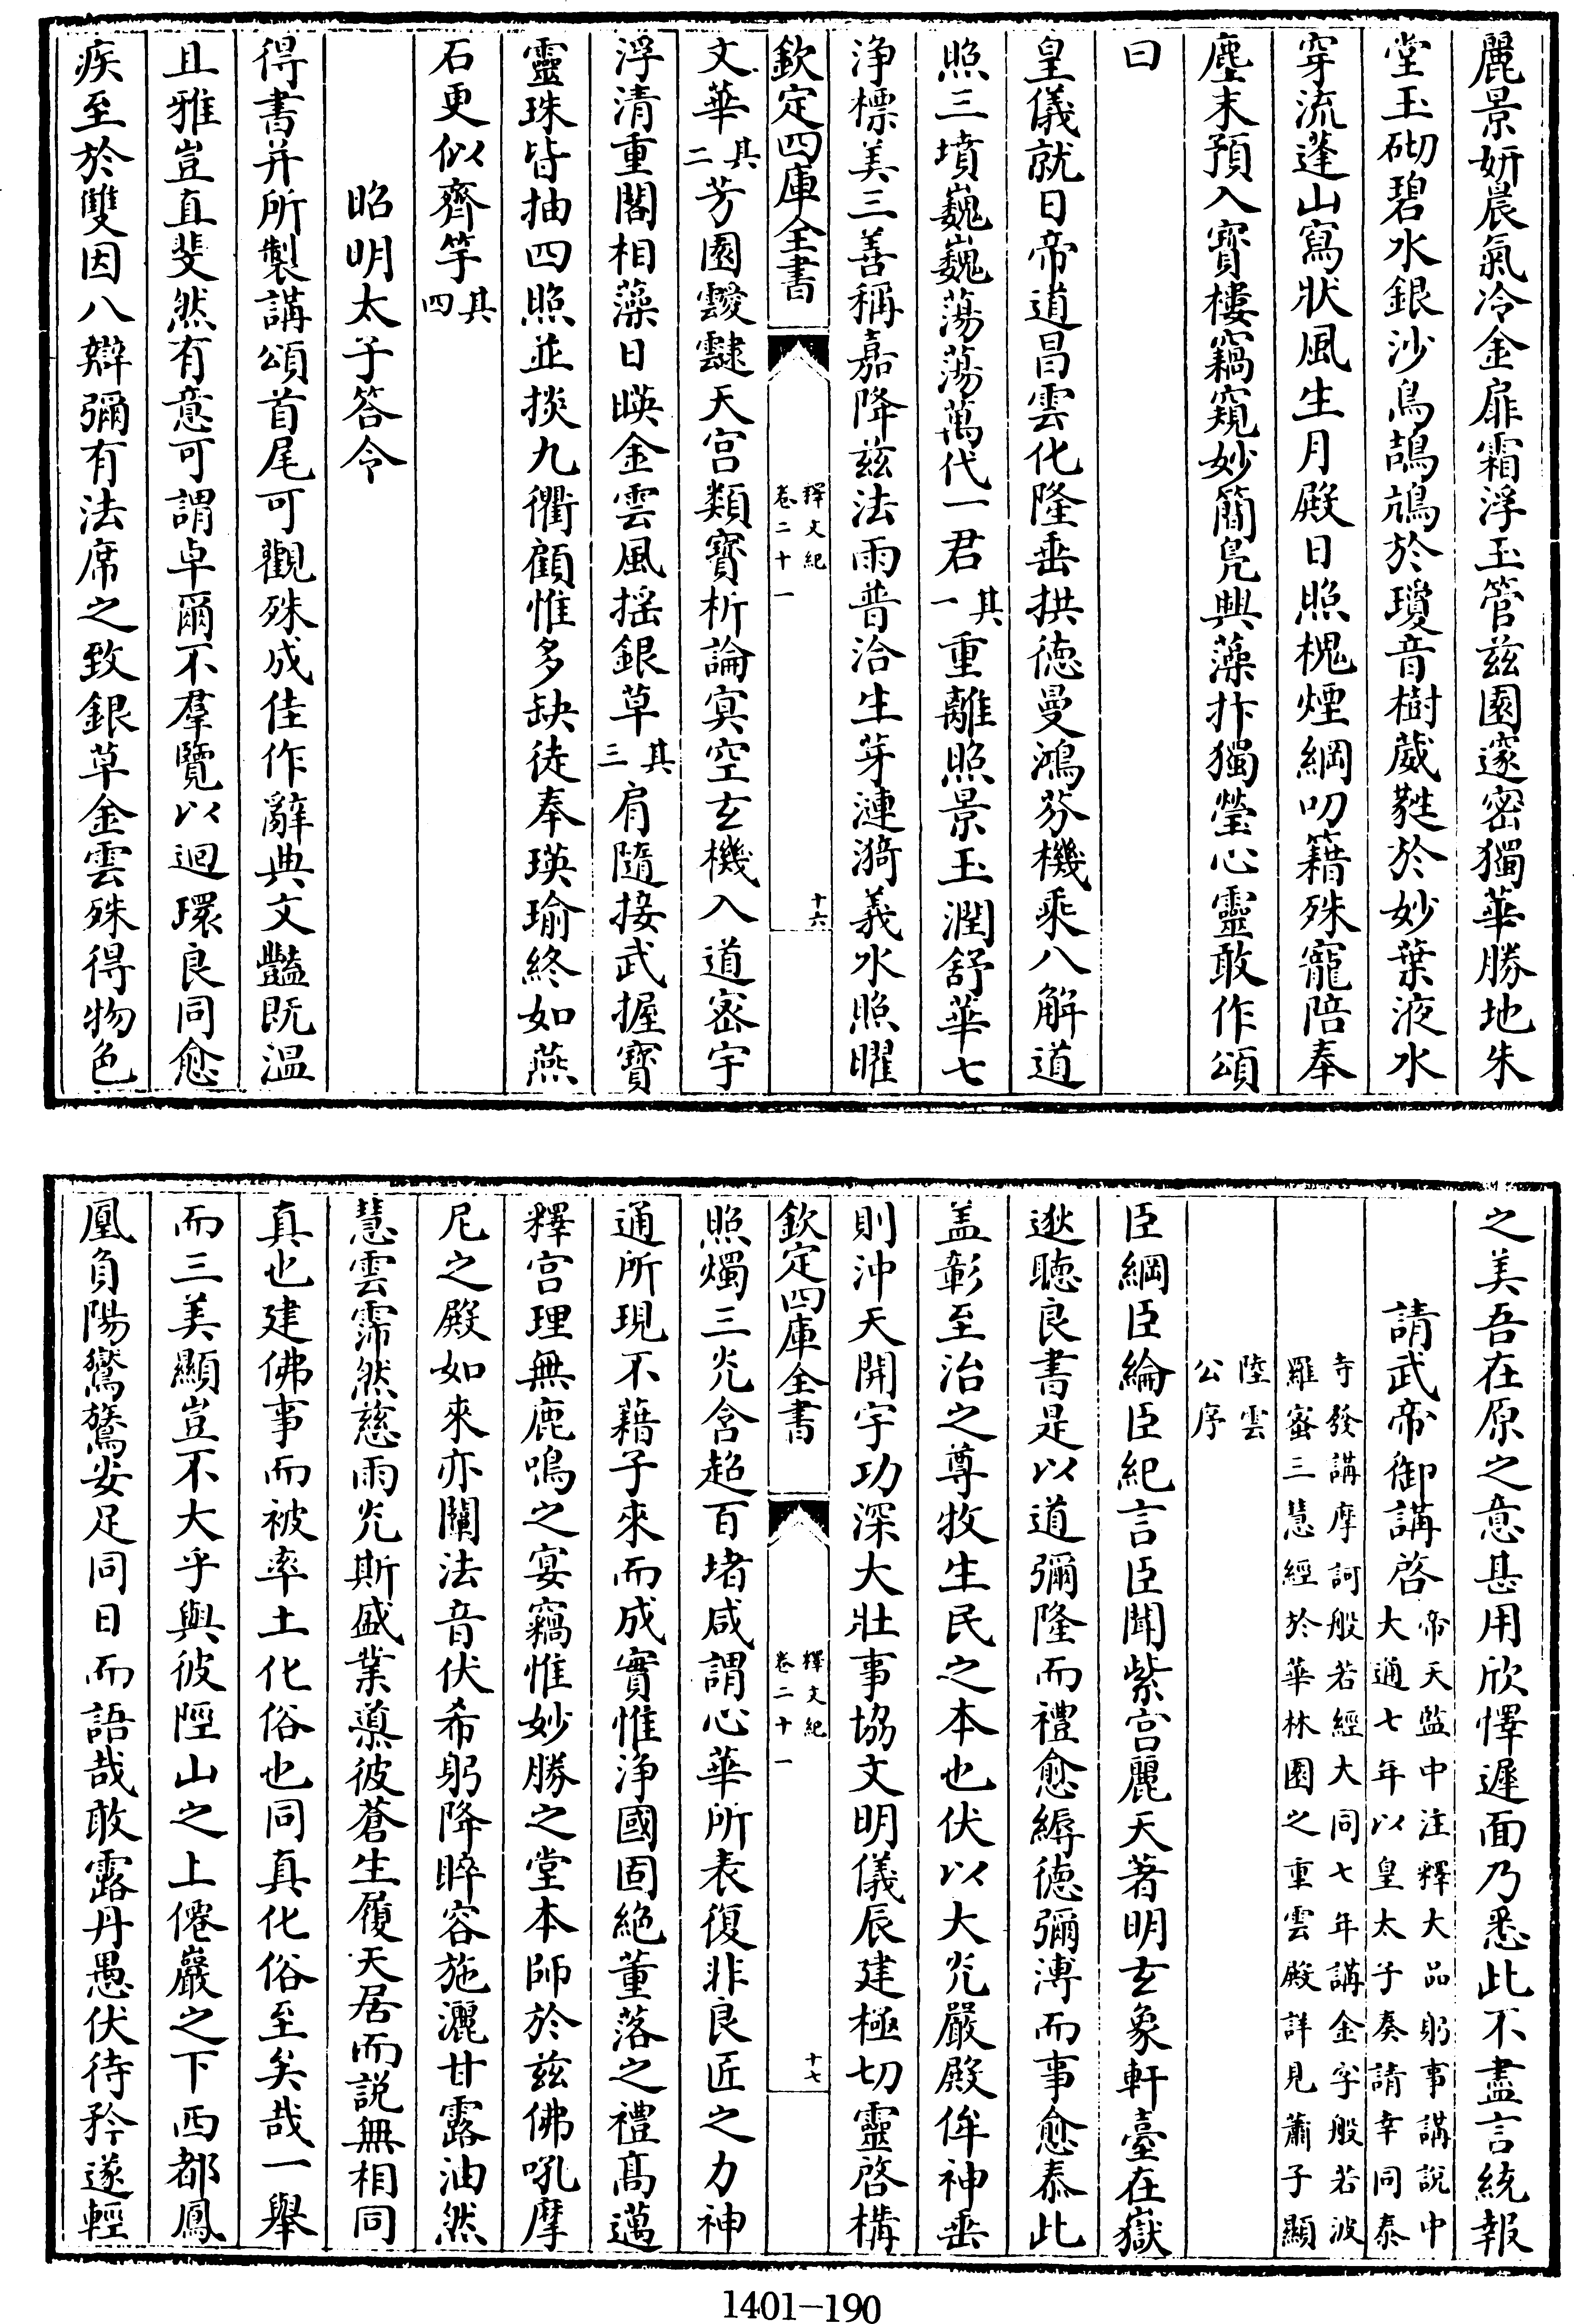 麗景妍晨氣冷金扉霜浮玉管兹園邃密獨華勝地朱
堂玉砌碧水銀沙鳥頡鴋於瓊音樹葳蕤於妙葉液水
穿流蓬山寫狀風生月殿日照槐煙綱叨籍殊寵陪奉
塵末預入寳樓竊窺妙簡鳧興藻抃獨瑩心靈敢作頌
曰
皇儀就日帝道昌雲化隆垂拱徳曼鴻芬機乘八解道
照三墳巍巍蕩蕩萬代一君其一重離照景玉潤舒華七
浄標美三善稱嘉降兹法雨普洽生芽漣漪義水照曜
欽定四庫全書 釋文紀卷二十一 十六
文華其二芳園靉靆天宫類寳析論冥空玄機入道宻宇
浮清重閣相藻日暎金雲風揺銀草其三肩隨接武握寳
靈珠皆抽四照並掞九衢顧惟多缺徒奉瑛瑜終如燕
石更似齊竽其四
昭明太子答令
得書并所製講頌首尾可觀殊成佳作辭典文豔既温
且雅豈直斐然有意可謂卓爾不羣覽以迴環良同愈
疾至於雙因八辯彌有法席之致銀草金雲殊得物色
之美吾在原之意甚用欣懌遲面乃悉此不盡言統報
請武帝御講啓帝天監中注釋大品躬事講說中大通七年以皇太子奏請幸同泰
寺發講摩訶般若經大同七年講金字般若波羅蜜三慧經於華林園之重雲殿詳見蕭子顯
陸雲公序
臣綱臣綸臣紀言臣聞紫宫麗天著明玄象軒臺在嶽
逖聴良書是以道彌隆而禮愈縟徳彌溥而事愈泰此
盖彰至治之尊牧生民之本也伏以大光嚴殿侔神垂
則沖天開宇功深大壯事協文明儀辰建極切靈啓構
欽定四庫全書 釋文紀卷二十一 十七
照燭三光含超百堵咸謂心華所表復非良匠之力神
通所現不藉子來而成實惟浄國固絶董落之禮髙邁
釋宫理無鹿鳴之宴竊惟妙勝之堂本師於兹佛吼摩
尼之殿如來亦闡法音伏希躬降睟容施灑甘露油然
慧雲霈然慈雨光斯盛業導彼蒼生履天居而説無相同
真也建佛事而被率土化俗也同真化俗至矣哉一舉
而三美顯豈不大乎與彼陘山之上僊巖之下西都鳳
凰負陽鶩鷟安足同日而語哉敢露丹愚伏待矜遂輕
1401—190